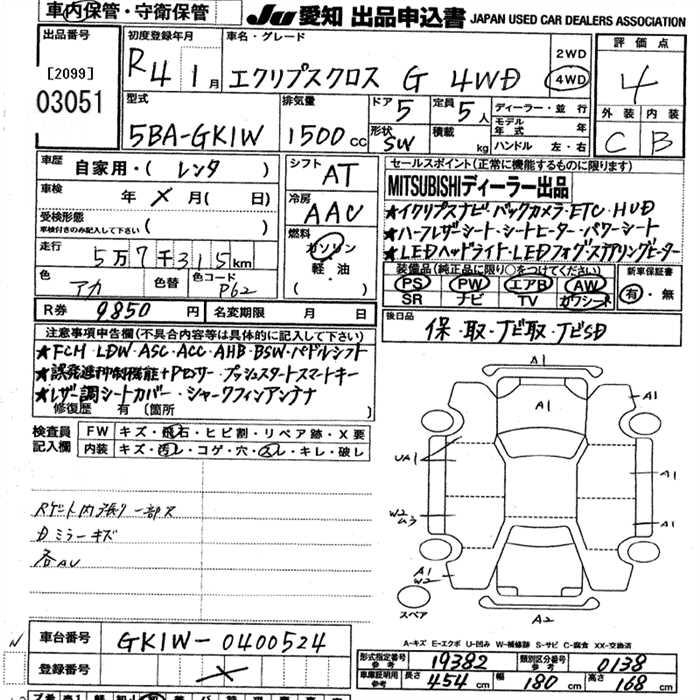 車内保管・守衛保管
JU 愛知 出品申込書 JAPAN USED CAR DEALERS ASSOCIATION
出品番号
[2099]
03051
初度登録年月
R4 1月
車名・グレード
エクリプスクロス G 4WD
2WD
4WD
評価点
4
外装 内装
C B
型式
5BA-GK1W
排気量
1500 CC
ドア 5
定員 5人
形状 SW
積載 kg
ディーラー・並行
モデル年式 年
ハンドル 左・右
車歴 自家用・(レンタ)
車検 年 メ 月( 日)
受検形態
車検付きのみ記入して下さい ( )
走行 5万7千315km
色 アカ
色替
色コード P62
シフト AT
冷房 AAC
燃料
ガソリン
軽油
( )
セールスポイント(正常に機能するものに限ります)
MITSUBISHIディーラー出品
★イクリプスナビ・バックカメラ・ETC・HUD
★ハーフレザーシート・シートヒーター・パワーシート
★LEDヘッドライト・LEDフォグ・ステアリングヒーター
装備品(純正品に限り○をつけてください)
PS PW エアB AW
SR ナビ TV カワシート
新車保証書
有・無
R券 9850円
名変期限 月 日
後日品
保・取・ナビ取・ナビSD
注意事項申告欄(不具合内容等は具体的に記入して下さい)
★FCM・LDW・ASC・ACC・AHB・BSW・パドルシフト
★誤発進抑制機能+Pセンサー・プッシュスタートスマートキー
★レザー調シートカバー・シャークフィンアンテナ
修復歴 有 〔箇所 〕
検査員記入欄
FW キズ・飛石・ヒビ割・リペア跡・X要
内装 キズ・汚レ・コゲ・穴・スレ・キレ・破レ
内張り一部ス
Dミラーキズ
各AU
A1
A1
A1
UA1
A1
W2
ムラ
A1
A1
W2
スペア
A2
A-キズ E-エクボ U-凹み W-補修跡 S-サビ C-腐食 XX-交換済
車台番号 GK1W-0400524
登録番号 メ
形式指定番号 参考 19382
類別区分番号 参考 0138
車庫証明用 参考 長さ 454cm 幅 180cm 高さ 168cm